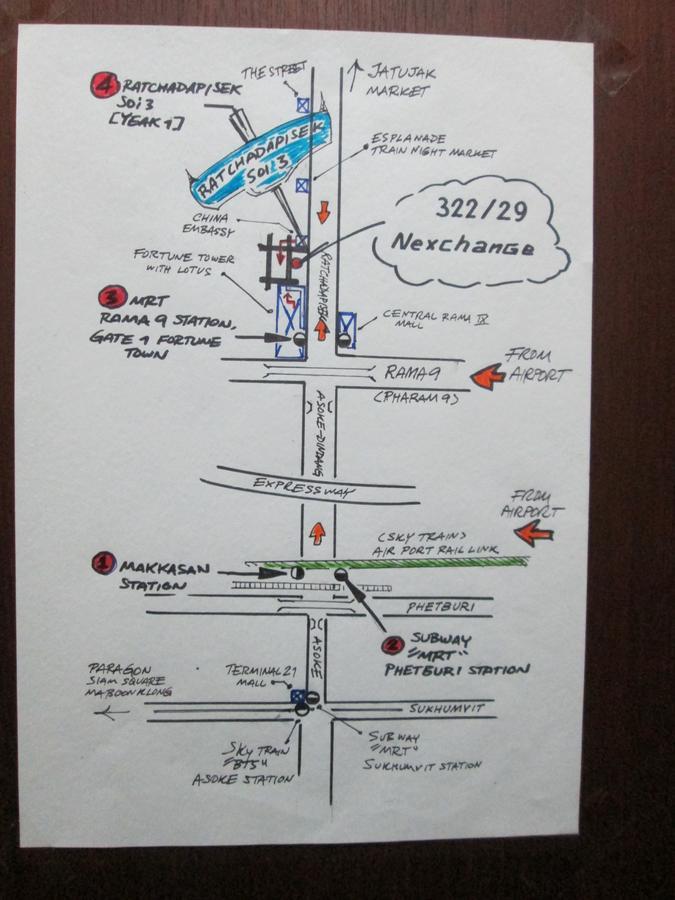 THE STREET
JATUJAK
MARKET
4 RATCHADAPISEK
SOi 3
[YEAK 1]
RATCHADAPISEK
SOi 3
ESPLANADE
TRAIN NIGHT MARKET
322/29
Nexchange
CHINA
EMBASSY
FORTUNE TOWER
WITH LOTUS
RATCHADAPISEK
3 MRT
RAMA 9 STATION,
GATE 1 FORTUNE
TOWN
CENTRAL RAMA IX
MALL
FROM
AIRPORT
RAMA9
(PHARAM9)
ASOKE-DINDANG
EXPRESSWAY
FROM
AIRPORT
(SKY TRAIN)
AIR PORT RAIL LINK
1 MAKKASAN
STATION
PHETBURI
2 SUBWAY
"MRT"
PHETBURI STATION
ASOKE
PARAGON
SIAM SQUARE
MABOONKLONG
TERMINAL 21
MALL
SUKHUMVIT
SKY TRAIN
"BTS"
ASOKE STATION
SUBWAY
"MRT"
SUKHUMVIT STATION